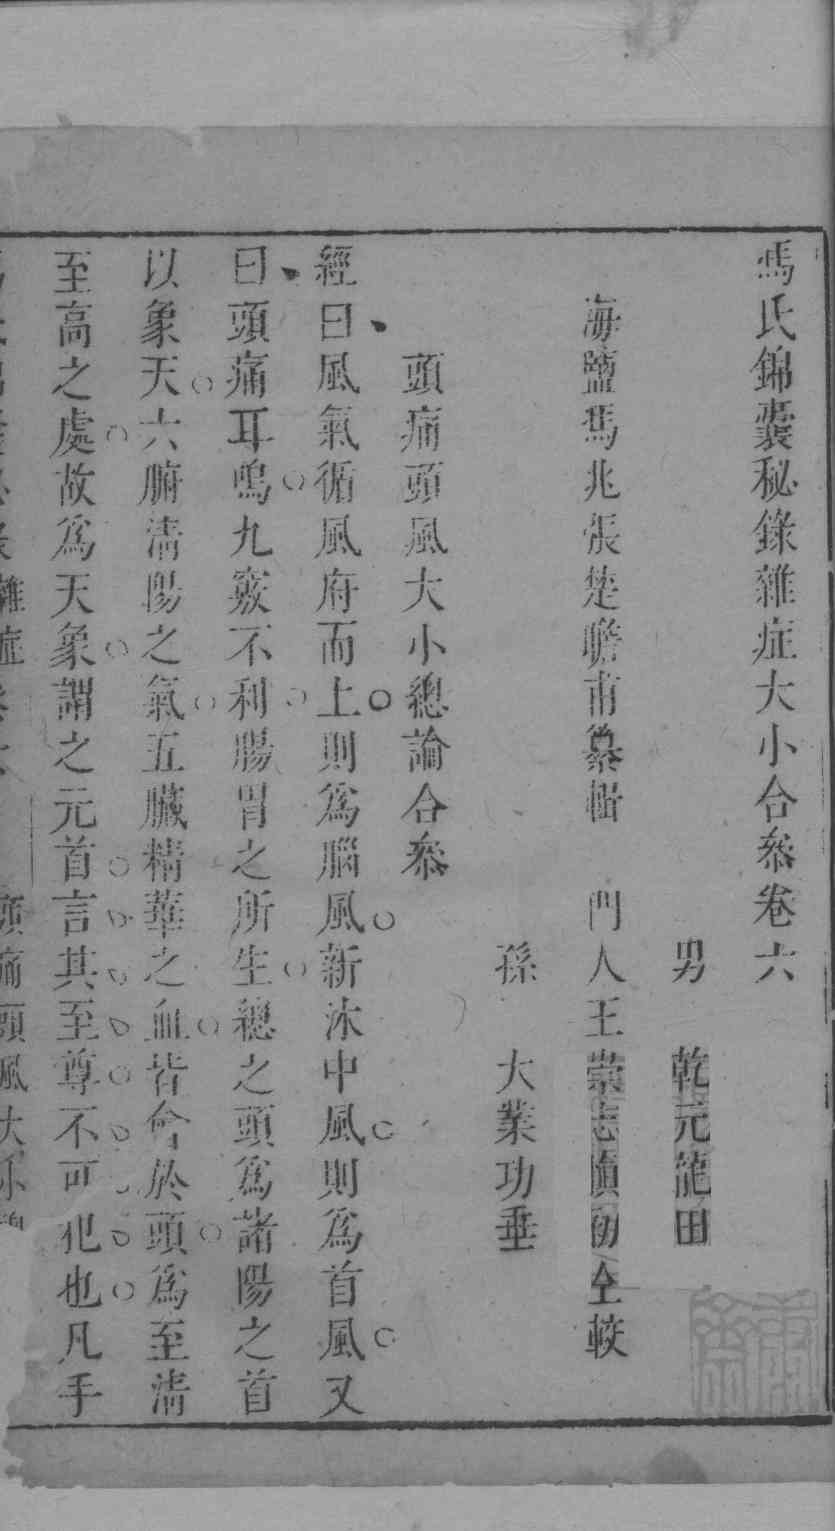 馮氏錦囊秘錄雜症大小合叅卷六
男　乾元龍田
海鹽馮兆張楚瞻甫纂輯　門人王崇志慎初仝較
孫　大業功垂
頭痛頭風大小總論合叅
經曰風氣循風府而上則為腦風新沐中風則為首風又
曰頭痛耳鳴九竅不利腸胃之所生總之頭為諸陽之首
以象天六腑清陽之氣五臟精華之血皆會於頭為至清
至高之處故為天象謂之元首言其至尊不可犯也凡手
雜症卷六　頭痛頭風大小